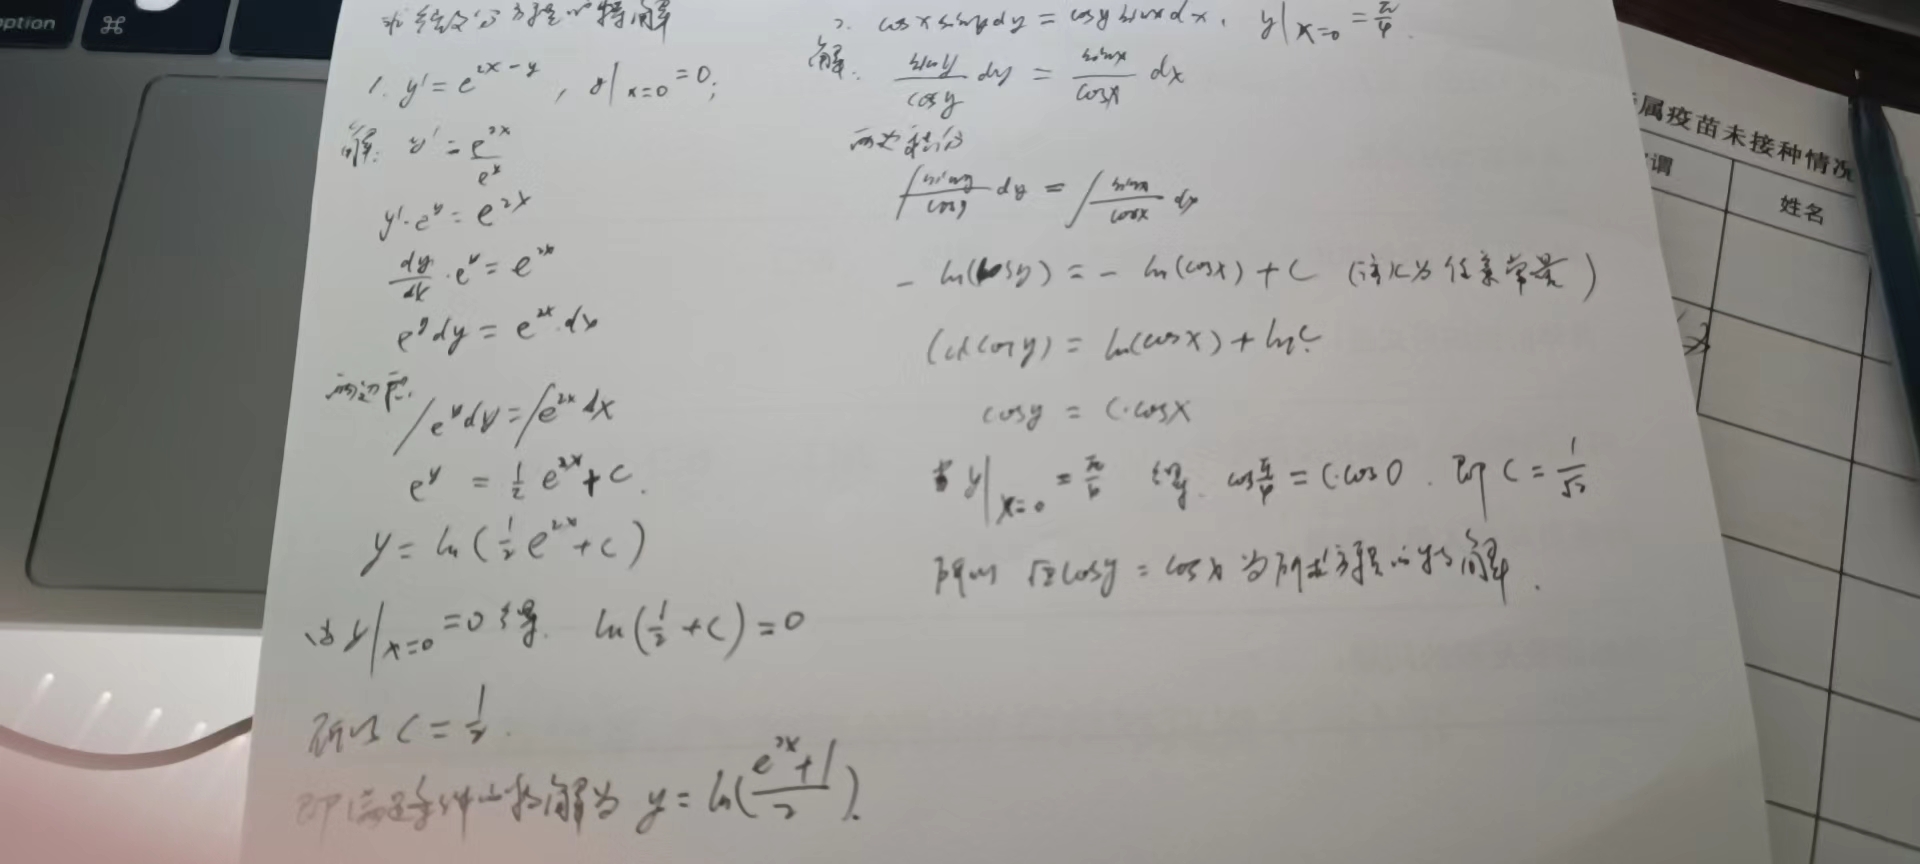 option
⌘
求微分方程的特解
1. y' = e^{2x-y}, y|_{x=0} = 0;
解: y' = \frac{e^{2x}}{e^y}
y'·e^y = e^{2x}
\frac{dy}{dx}·e^y = e^{2x}
e^y dy = e^{2x}·dx
∫e^y dy = ∫e^{2x} dx
e^y = \frac{1}{2} e^{2x} + C.
y = ln(\frac{1}{2} e^{2x} + C)
y|_{x=0} = 0 得. ln(\frac{1}{2} + C) = 0
所以 C = \frac{1}{2}.
即满足条件的特解为 y = ln(\frac{e^{2x}+1}{2}).
2. cosx siny dy = cosy sinx dx, y|_{x=0} = \frac{π}{4}.
解. \frac{siny}{cosy} dy = \frac{sinx}{cosx} dx
两边积分
∫\frac{siny}{cosy} dy = ∫\frac{sinx}{cosx} dx
- ln(cosy) = - ln(cosx) + C (为任意常量)
ln(cosy) = ln(cosx) + lnC
cosy = C·cosx
y|_{x=0} = 得. cos\frac{π}{4} = C·cos0. 即 C = \frac{1}{\sqrt{2}}
所以 \sqrt{2}cosy = cosx 为所求方程的特解.
属疫苗未接种情况
谓
姓名